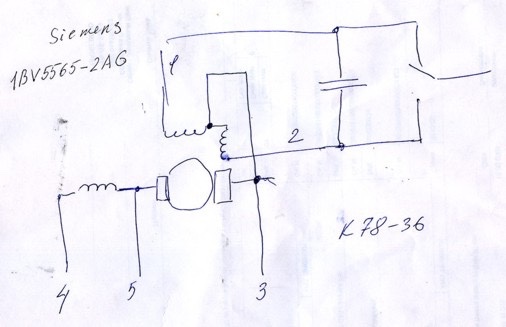 Siemens
1BV5565-2AG
2
K78-36
4 5 3